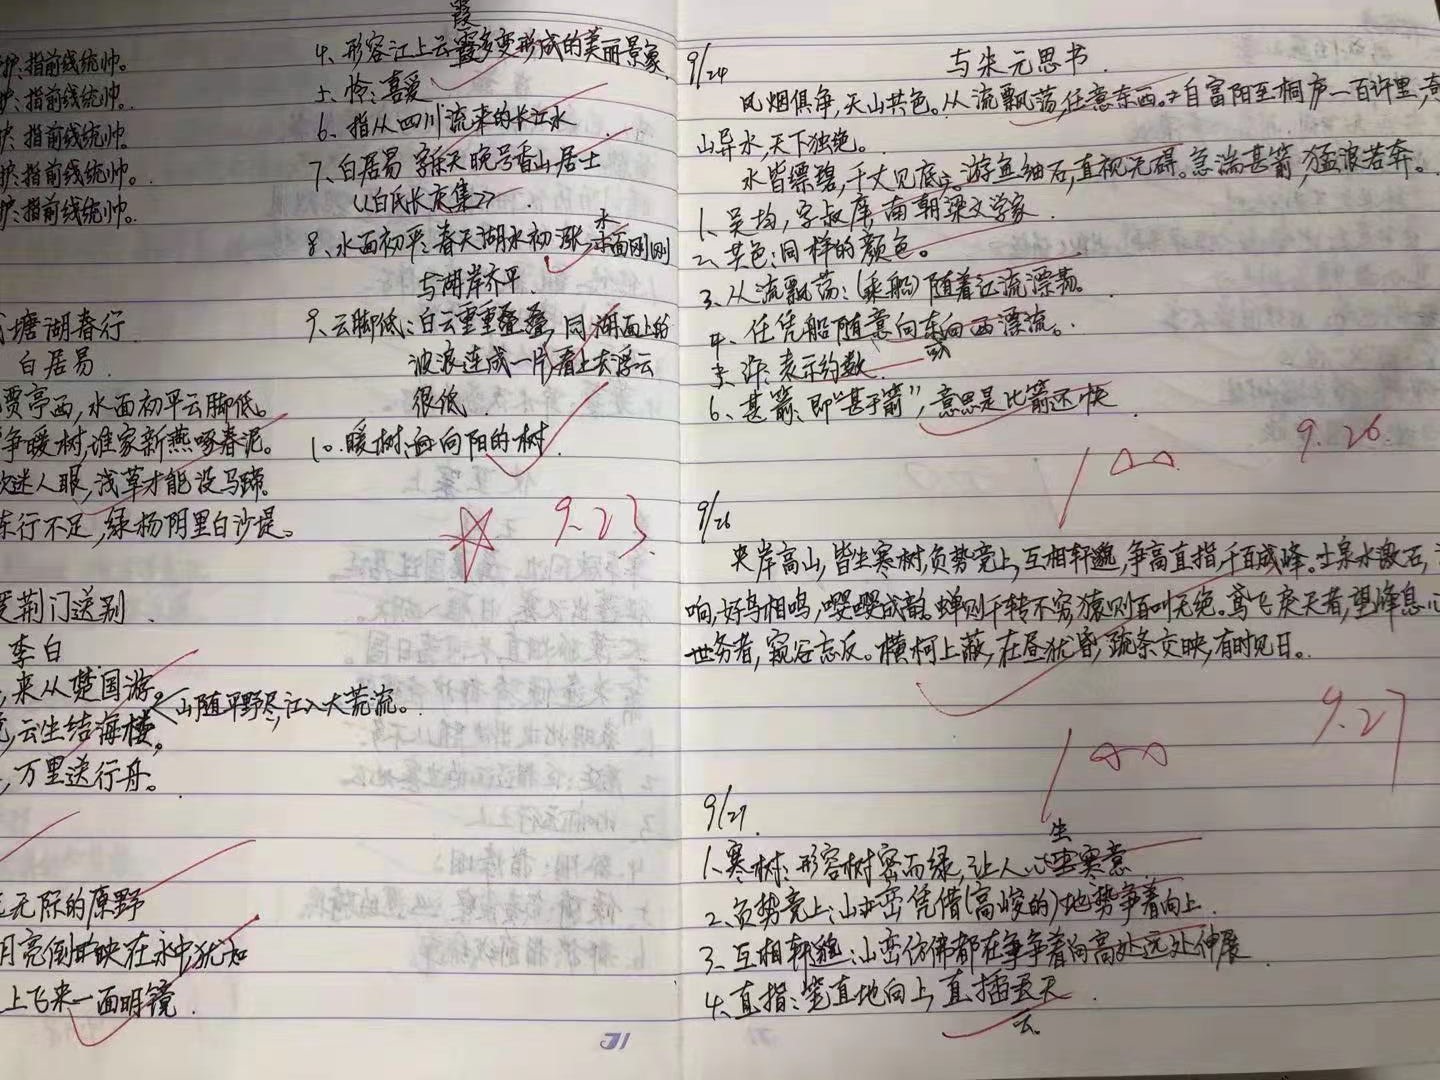 护:指前线统帅。
护:指前线统帅。
护:指前线统帅。
护:指前线统帅。
护:指前线统帅。
塘湖春行
白居易
贾亭西,水面初平云脚低。
争暖树,谁家新燕啄春泥。
欲迷人眼,浅草才能没马蹄。
东行不足,绿杨阴里白沙堤。
荆门送别
李白
,来从楚国游。
山随平野尽,江入大荒流。
,云生结海楼。
,万里送行舟。
无际的原野
月亮倒映在水中犹如
上飞来一面明镜
霞
4、形容江上云霞多变形成的美丽景象
5、怜:喜爱
6、指从四川流来的长江水
7、白居易 字乐天 晚号香山居士
《白氏长庆集》
8、水面初平:春天湖水初涨,水面刚刚
水
与湖岸齐平
9、云脚低:白云重重叠叠,同湖面上的
波浪连成一片,看上去浮云
很低
10.暖树:面向阳的树
9.23
31
9/24
与朱元思书
风烟俱净,天山共色。从流飘荡,任意东西。自富阳至桐庐一百许里,奇
山异水,天下独绝。
水皆缥碧,千丈见底。游鱼细石,直视无碍。急湍甚箭,猛浪若奔。
1、吴均,字叔庠,南朝梁文学家
2、共色:同样的颜色。
3、从流飘荡:(乘船)随着江流漂荡。
4、任凭船随意向东向西漂流。
5、许:表示约数
6、甚箭:即“甚于箭”,意思是比箭还快
100
9.26.
9/26
夹岸高山,皆生寒树,负势竞上,互相轩邈,争高直指,千百成峰。泉水激石,
响,好鸟相鸣,嘤嘤成韵。蝉则千转不穷,猿则百叫无绝。鸢飞戾天者,望峰息心
世务者,窥谷忘反。横柯上蔽,在昼犹昏,疏条交映,有时见日。
100
9.27
9/27
生
1.寒树:形容树密而绿,让人心生寒意
2.负势竞上:山峦凭借(高峻的)地势争着向上
3、互相轩邈:山峦仿佛都在争争着向高处远处伸展
4、直指:笔直地向上,直插云天
云